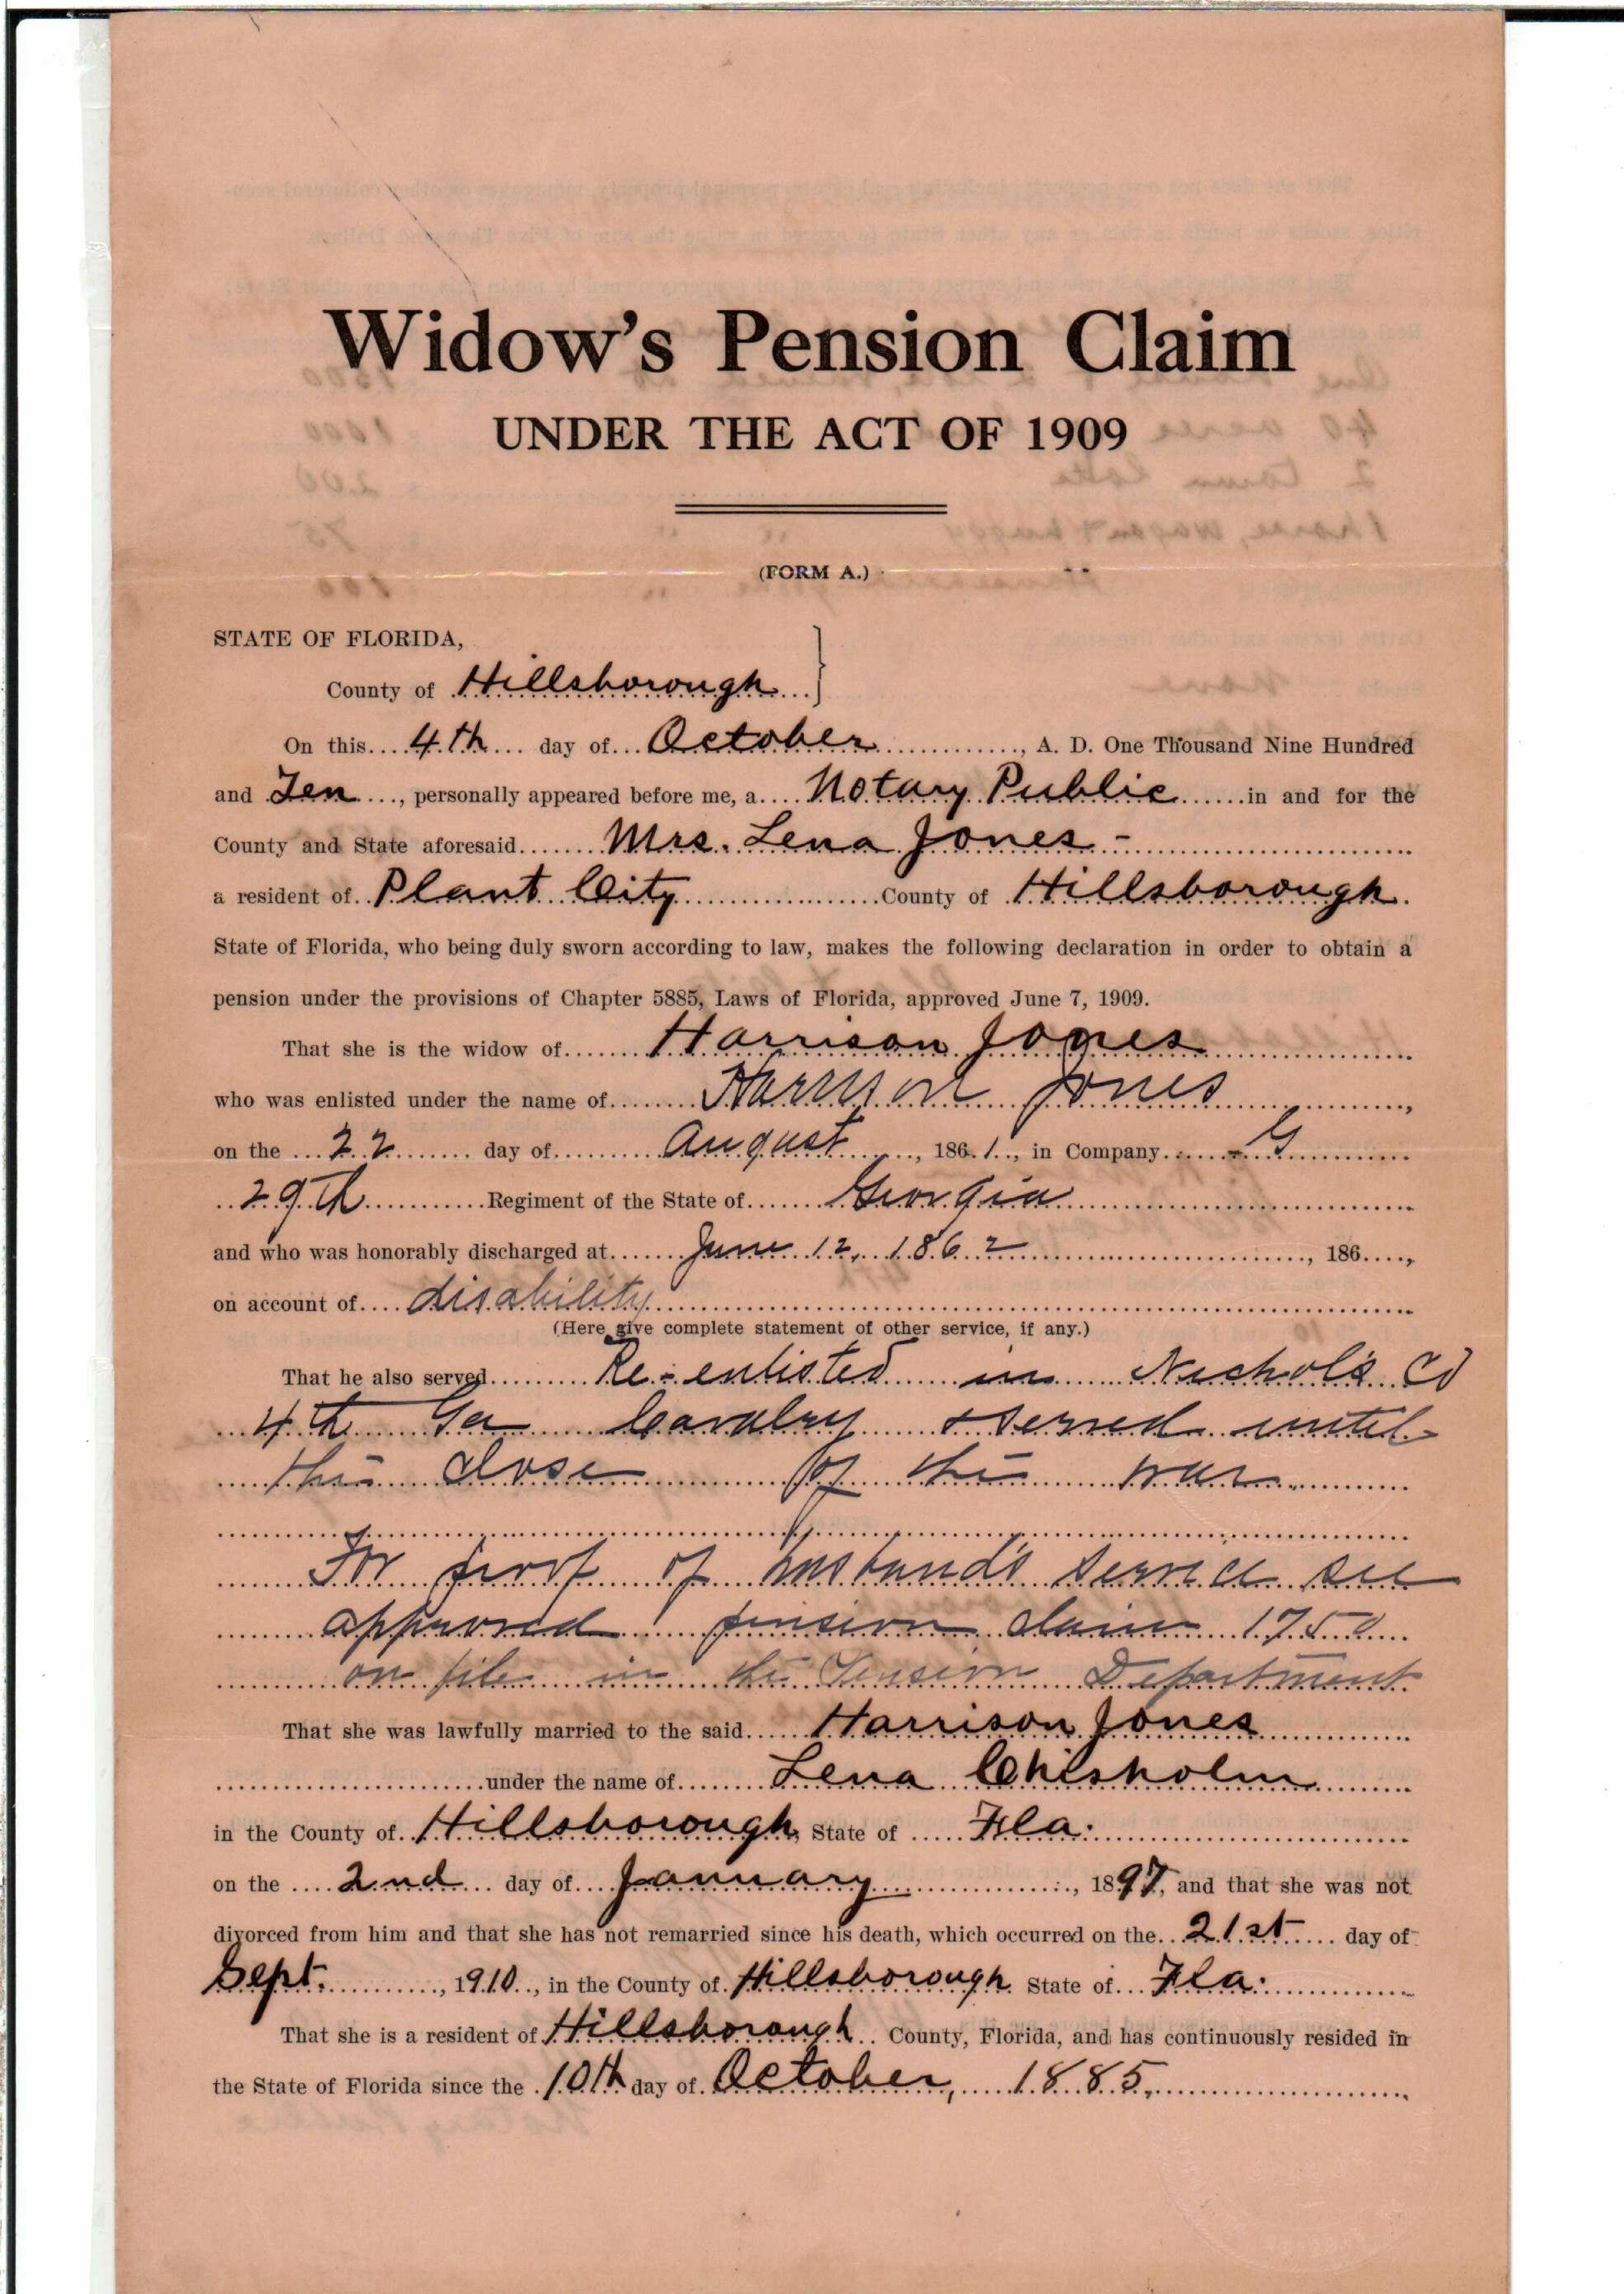 Widow's Pension Claim
UNDER THE ACT OF 1909
(FORM A.)
STATE OF FLORIDA,
County of Hillsborough
On this 4th day of October, A. D. One Thousand Nine Hundred
and Ten, personally appeared before me, a Notary Public in and for the
County and State aforesaid Mrs. Lena Jones -
a resident of Plant City County of Hillsborough.
State of Florida, who being duly sworn according to law, makes the following declaration in order to obtain a
pension under the provisions of Chapter 5885, Laws of Florida, approved June 7, 1909.
That she is the widow of Harrison Jones
who was enlisted under the name of Harrison Jones,
on the 22 day of August, 1861, in Company G
29th Regiment of the State of Georgia
and who was honorably discharged at June 12, 1862, 186,
on account of disability
(Here give complete statement of other service, if any.)
That he also served Re-enlisted in Nichols Co
4th Ga Cavalry & served until
the close of the war
For proof of husband's service see
approved pension claim 1750
on file in the Pension Department
That she was lawfully married to the said Harrison Jones
under the name of Lena Chisholm
in the County of Hillsborough, State of Fla.
on the 2nd day of January, 1897, and that she was not
divorced from him and that she has not remarried since his death, which occurred on the 21st day of
Sept., 1910, in the County of Hillsborough State of Fla.
That she is a resident of Hillsborough County, Florida, and has continuously resided in
the State of Florida since the 10th day of October, 1885.